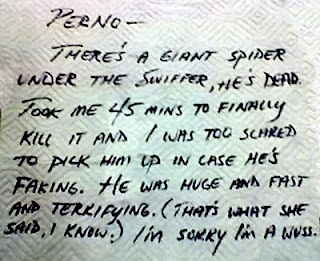 PERNO-
THERE'S A GIANT SPIDER
UNDER THE SWIFFER, HE'S DEAD.
TOOK ME 45 MINS TO FINALLY
KILL IT AND I WAS TOO SCARED
TO PICK HIM UP IN CASE HE'S
FAKING. HE WAS HUGE AND FAST
AND TERRIFYING. (THAT'S WHAT SHE
SAID, I KNOW.) I'M SORRY I'M A WUSS.